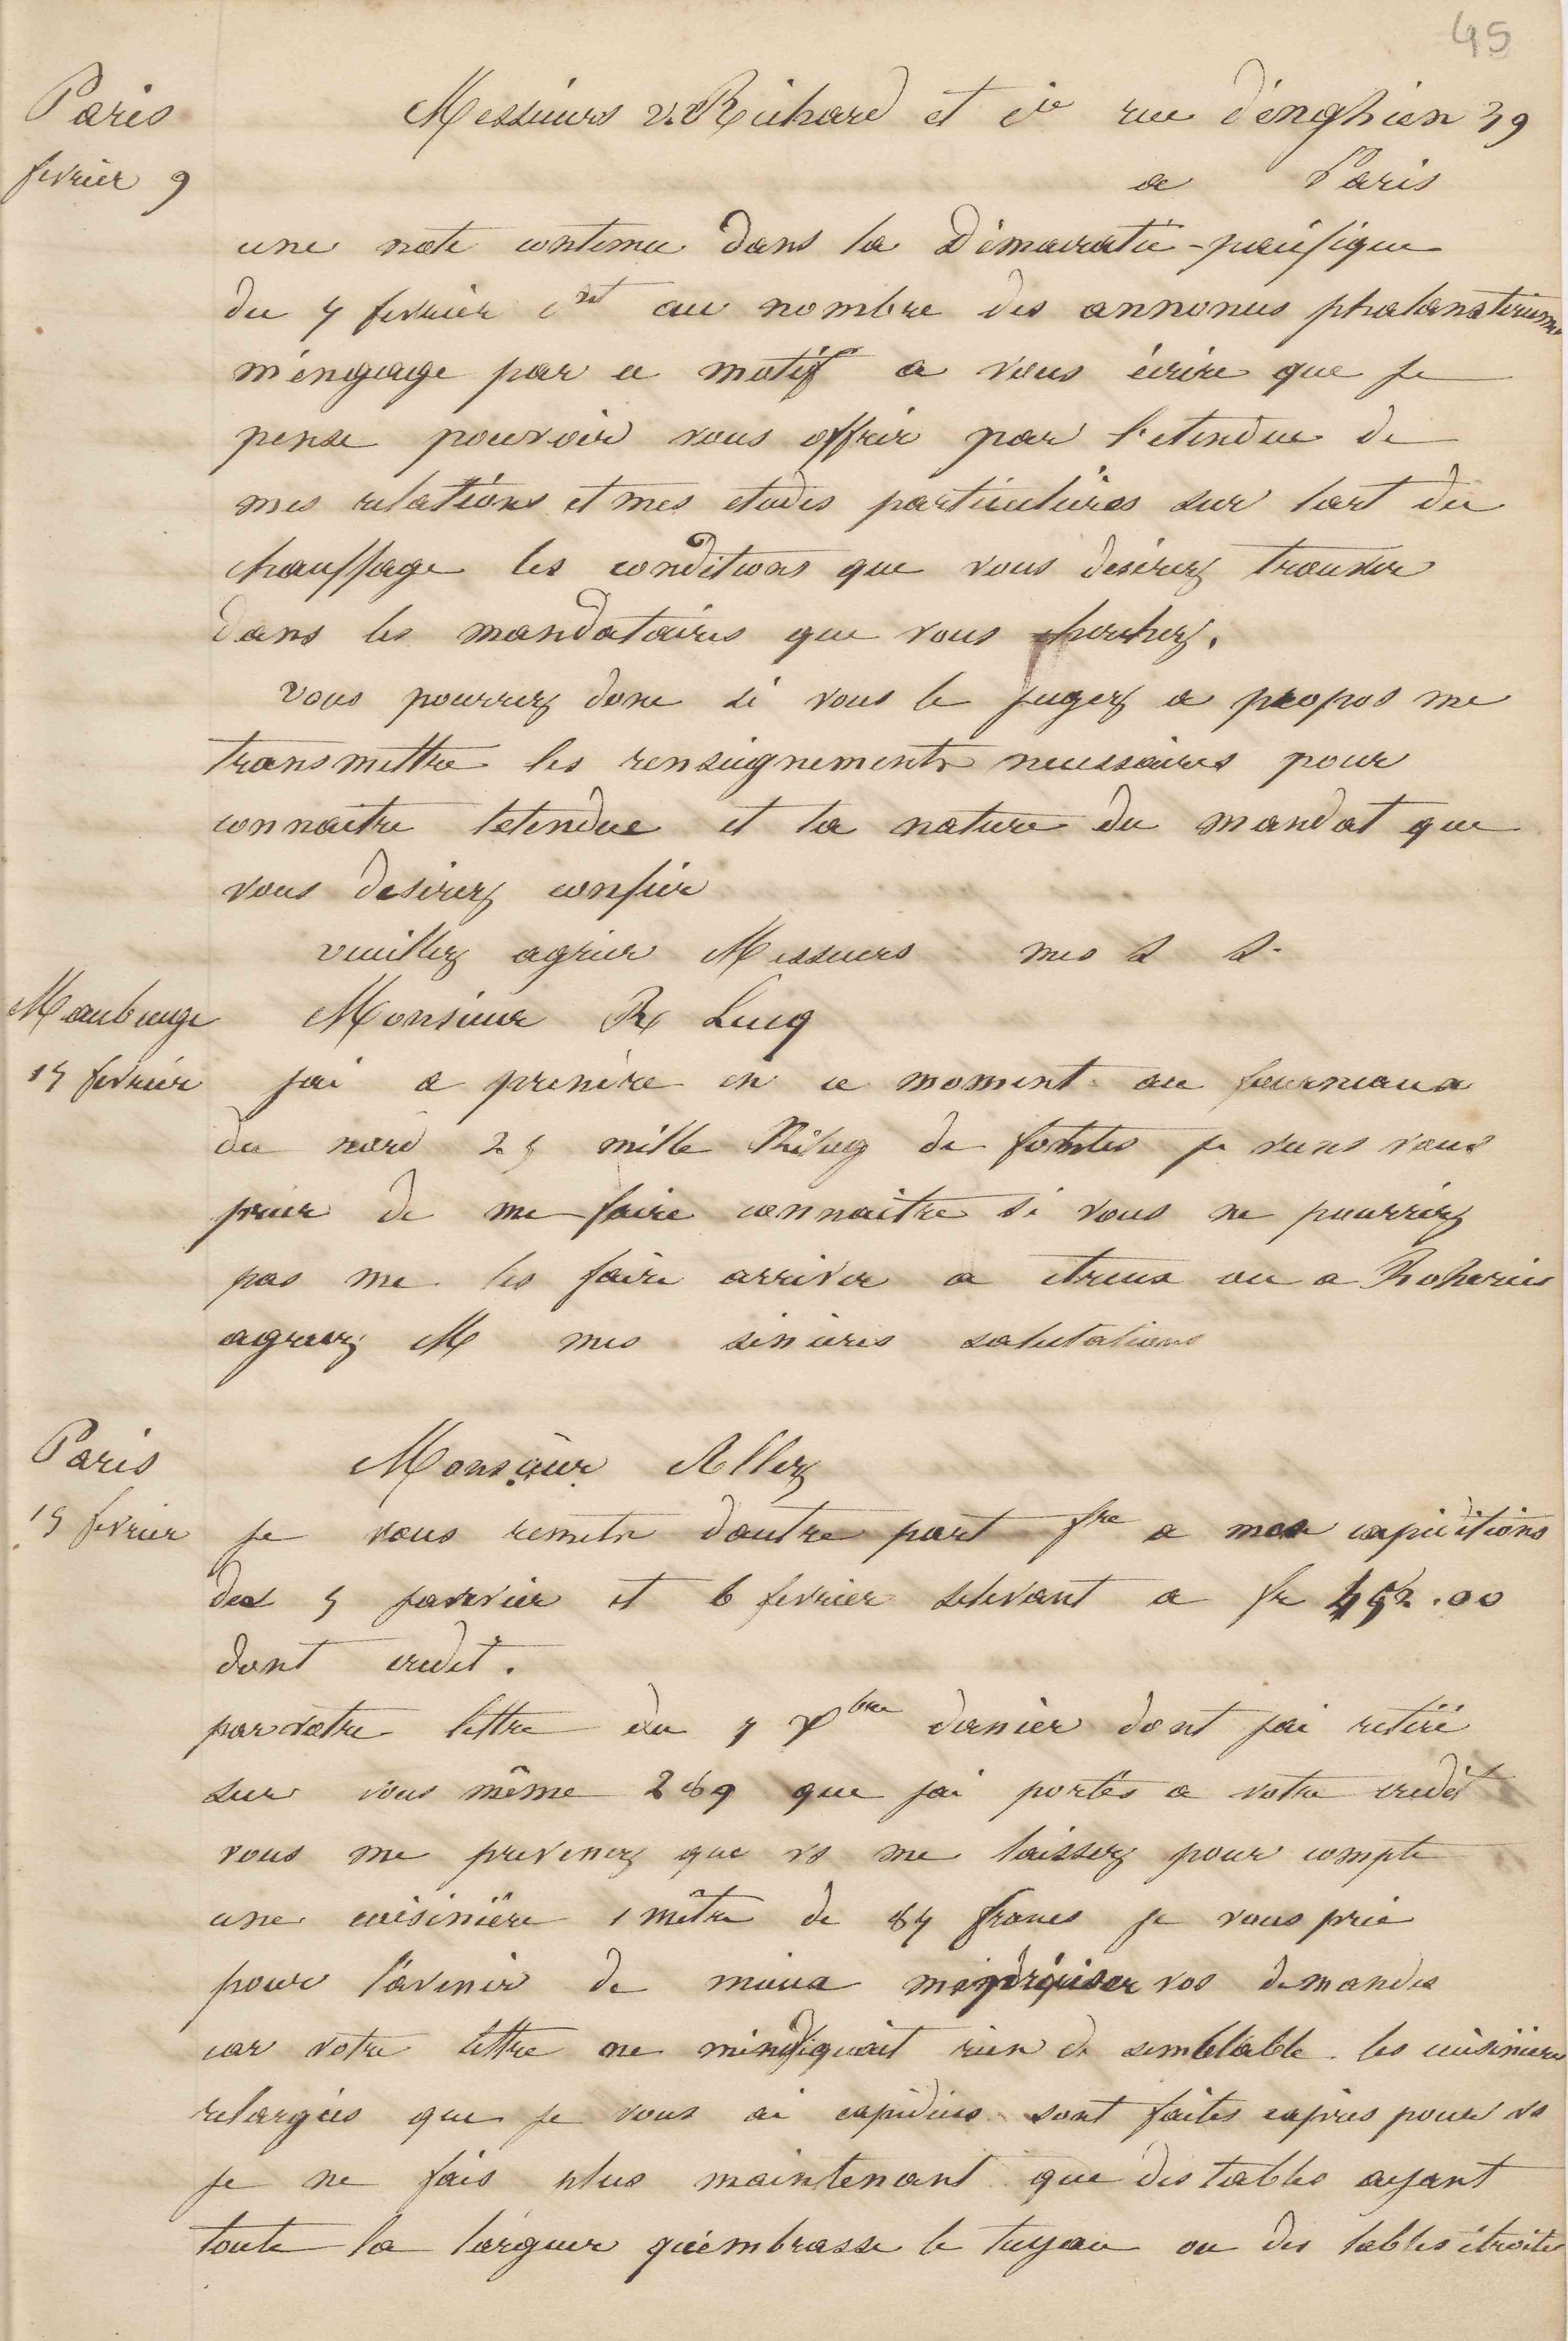 45
Paris
fevrier 9
Messieurs V. Richard et cie rue d'enghien 39
a Paris
une note contenue dans la Démocratie-pacifique
du 7 fevrier ct au nombre des annonces phalansterienne
m'engage par ce motif a vous écrire que je
pense pouvoir vous offrir par l'etendue de
mes relations et mes etudes particulières sur lart du
chauffage les conditions que vous desirez trouver
dans les mandataires que vous cherchez.
vous pourrez donc si vous le jugez a propos me
transmettre les renseignements necessaires pour
connaitre letendue et la nature du mandat que
vous desirez confier
veuillez agréer Messieurs mes S S.
Maubeuge
15 fevrier
Monsieur R Lucq
jai a prendre en ce moment au fourneaux
du nord 25 mille Kilog de fontes je viens vous
prier de me faire connaitre si vous ne pourriez
pas me les faire arriver a etreux ou a Roherie
agreez M mes sincères salutations
Paris
15 fevrier
Monsieur Allez
je vous remets dautre part fre a mes expeditions
des 5 janvier et 6 fevrier selevant a fr 452.00
dont credit.
par votre lettre du 7 Xbre dernier dont jai retiré
sur vous même 289 que jai portés a votre credit
vous me prevenez que vs me laissez pour compte
une cuisinière 1 mètre de 87 francs je vous prie
pour l'avenir de mieux me préciser vos demandes
car votre lettre ne mindiquait rien de semblable. les cuisinières
relargies que je vous ai expediées sont faites expres pour vs
je ne fais plus maintenant que des tables ayant
toute la largeur qu'embrasse le tuyau ou des tables étroites